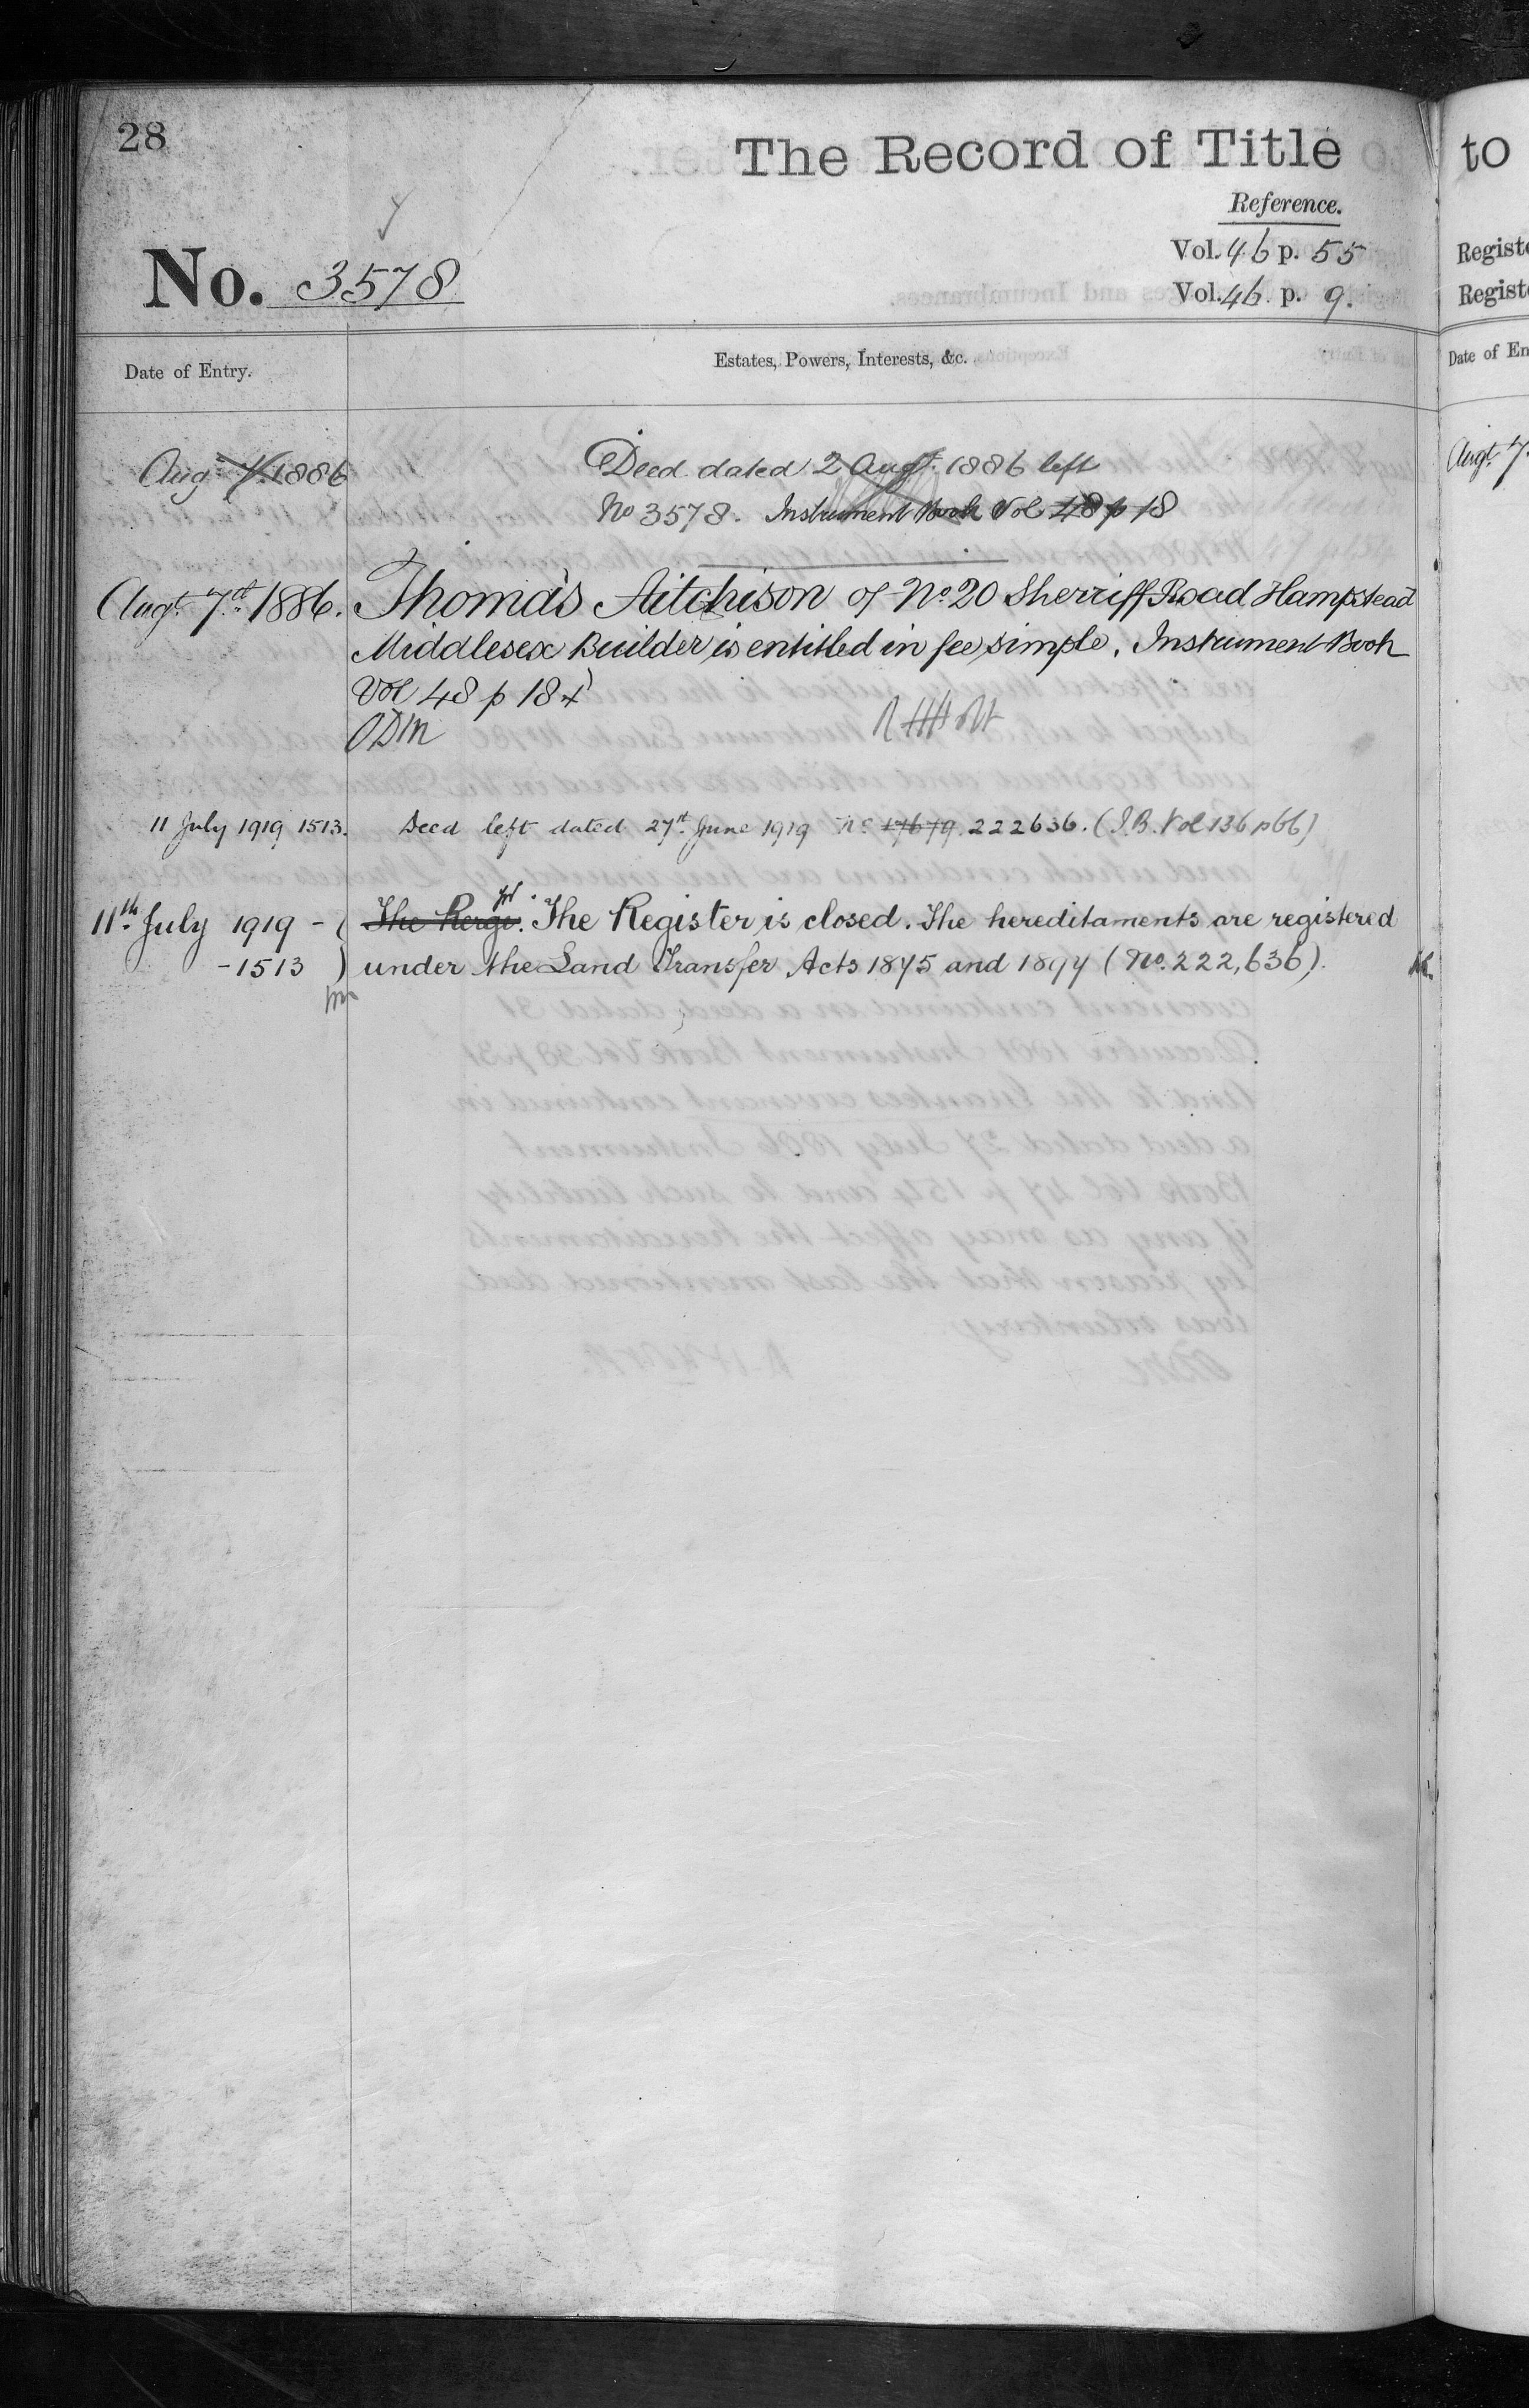 28
The Record of Title
Reference.
Vol. 46 p. 55
No. 3578
Vol. 46. p. 9.
Date of Entry.
Estates, Powers, Interests, &c.
Augt 7. 1886
Deed dated 2 Augt. 1886 left
No 3578. Instrument Book Vol 48 p 18
Augt. 7th 1886. Thomas Aitchison of No. 20 Sherriff Road Hampstead
Middlesex Builder is entitled in fee simple. Instrument Book
Vol 48 p 18
ODM
11 July 1919 1513. Deed left dated 27th June 1919 No 17679. 222636. (I.B. Vol 136 p 66)
11th July 1919 - ( The Regr. The Register is closed. The hereditaments are registered
- 1513 ) under the Land Transfer Acts 1875 and 1897 (No. 222,636).
to
Registe
Registe
Date of En
Augt. 7.